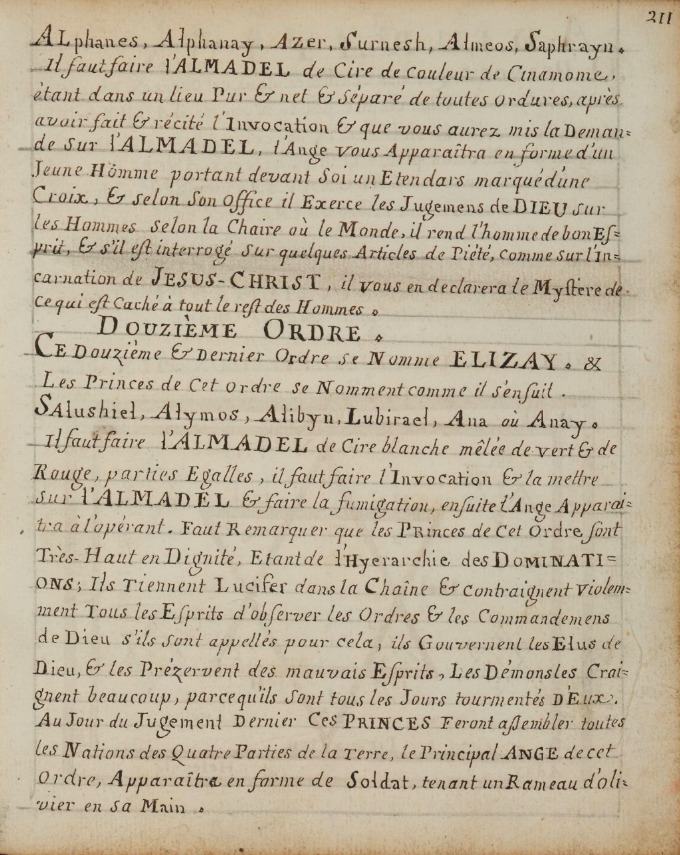 211
ALphanes, Alphanay, Azer, Surnesh, Almeos, Saphrayn.
Il faut faire l'ALMADEL de Cire de Couleur de Cinamome,
étant dans un lieu Pur & net & Séparé de toutes ordures, après
avoir fait & récité l'Invocation & que vous aurez mis la Deman=
de Sur l'ALMADEL, l'Ange vous Apparaîtra en forme d'un
Jeune Homme portant devant Soi un Etendars marqué d'une
Croix, & selon Son Office il Exerce les Jugemens de DIEU Sur
les Hommes selon la Chaire où le Monde, il rend l'homme de bon Es=
prit, & s'il est interrogé Sur quelques Articles de Piété, comme sur l'In=
carnation de JESUS-CHRIST, il vous en declarera le Mystère de
ce qui est Caché à tout le rest des Hommes.
DOUZIÈME ORDRE.
CE Douzième & Dernier Ordre se Nomme ELIZAY. &
Les Princes de Cet Ordre se Nomment comme il s'ensuit.
Salushiel, Alymos, Alibyn, Lubirael, Ana où Anay.
Il faut faire l'ALMADEL de Cire blanche mêlée de vert & de
Rouge, parties Egalles, il faut faire l'Invocation & la mettre
Sur l'ALMADEL & faire la fumigation, ensuite l'Ange Apparaî=
tra à l'opérant. Faut Remarquer que les Princes de Cet Ordre sont
Très-Haut en Dignité, Etant de l'Hyerarchie des DOMINATI=
ONS; Ils Tiennent Lucifer dans la Chaîne & contraignent Violem=
ment Tous les Esprits d'observer les Ordres & les Commandemens
de Dieu s'ils sont appellés pour cela, ils Gouvernent les Elus de
Dieu, & les Prézervent des mauvais Esprits, Les Démons les Crai=
gnent beaucoup, parcequ'ils sont tous les Jours tourmentés D'Eux.
Au Jour du Jugement Dernier Ces PRINCES Feront assembler toutes
les Nations des Quatre Parties de la Terre, le Principal ANGE de cet
Ordre, Apparaîtra en forme de Soldat, tenant un Rameau d'oli=
vier en sa Main.